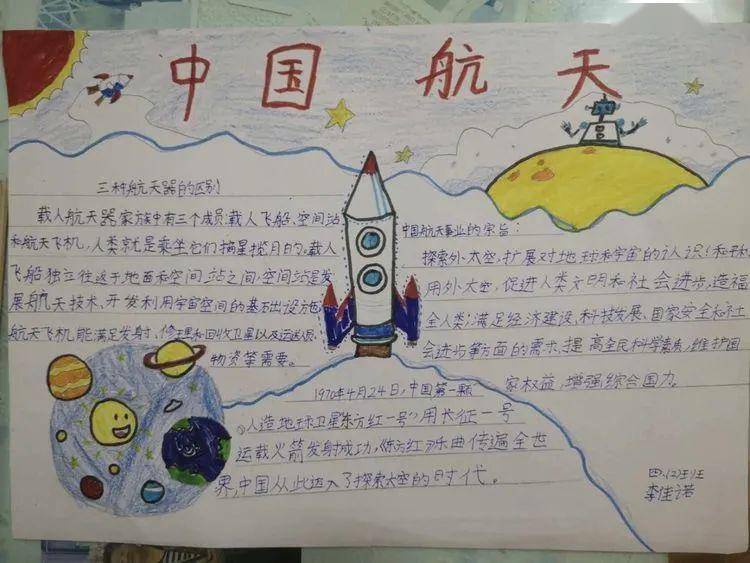 中国航天
三种航天器的区别
载人航天器家族中有三个成员:载人飞船、空间站
和航天飞机,人类就是乘坐它们摘星揽月的。载人
飞船独立往返于地面和空间站之间,空间站是发
展航天技术、开发利用宇宙空间的基础设施,
航天飞机能满足发射、修理和回收卫星以及运送
物资等需要。
中国航天事业的宗旨:
探索外太空,扩展对地球和宇宙的认识;和平利
用外太空,促进人类文明和社会进步,造福
全人类;满足经济建设、科技发展、国家安全和社
会进步等方面的需求,提高全民科学素质,维护国
家权益,增强综合国力。
1970年4月24日,中国第一颗
人造地球卫星“东方红一号”用长征一号
运载火箭发射成功,《东方红》乐曲传遍全世
界,中国从此迈入了探索太空的时代。
四.(2)班
李佳诺